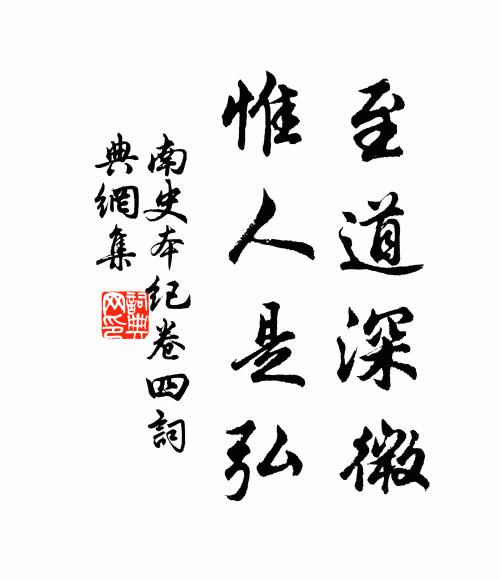 至道深微
惟人是弘
南史本纪卷四詞
典網集
詞典
网印